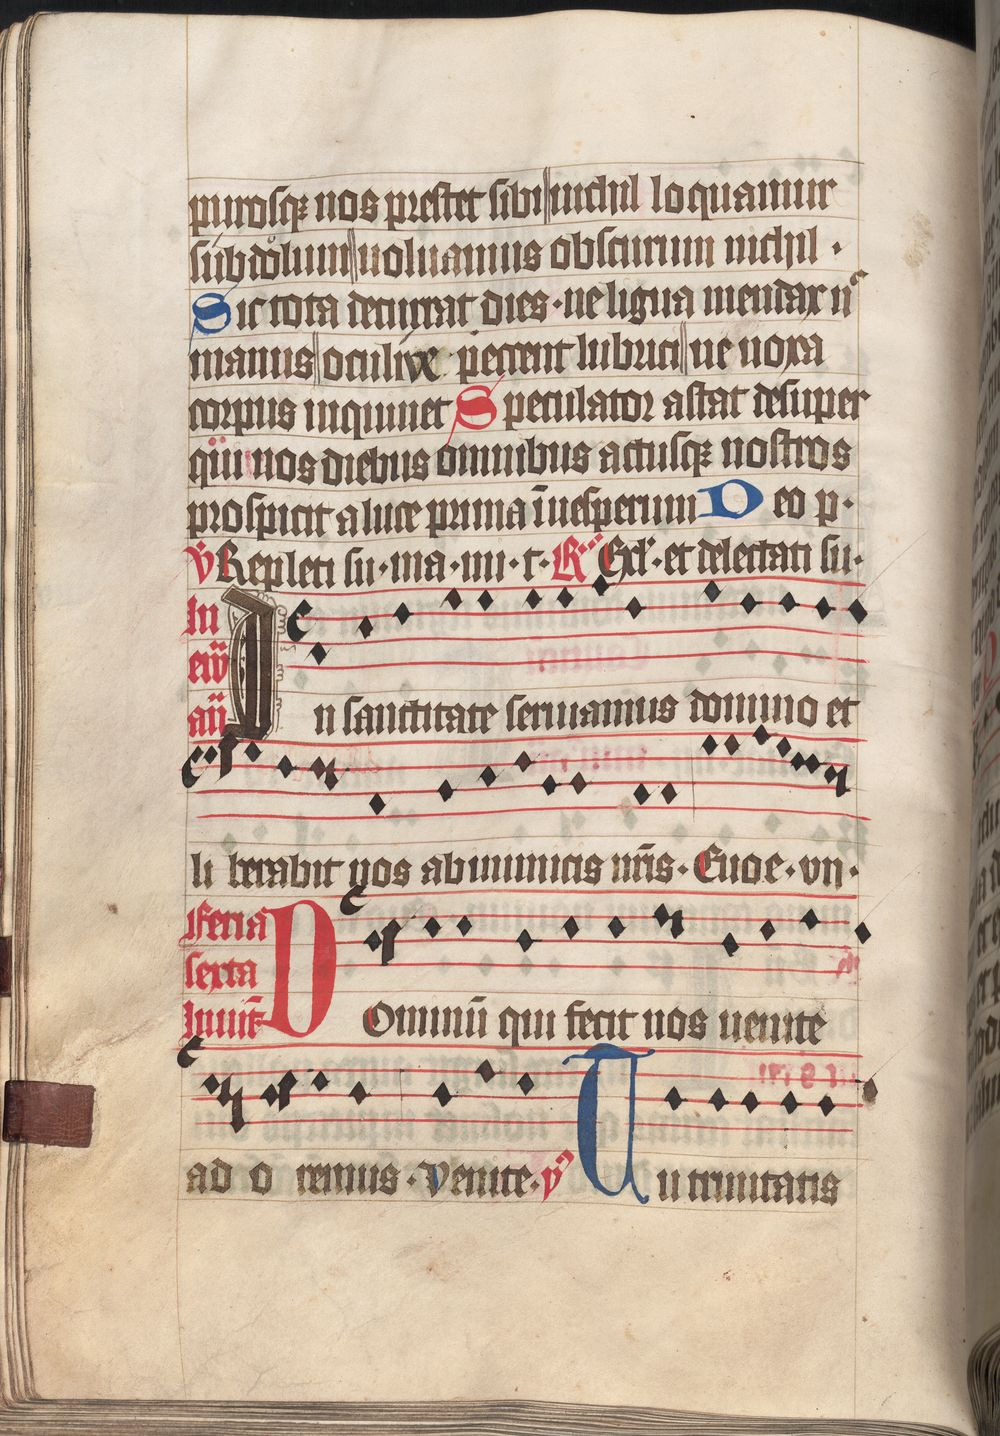 purosq; nos prestet sibi nichil loquamur
subdolum uoluamus obscurum nichil ·
Sic tota decurrat dies · ne ligua mendax n
manus oculi ve peccent lubrici ne noxa
corpus inquinet Speculator astat desuper
qui nos diebus omnibus actusq; nostros
prospicit a luce prima i uesperum Deo p ·
V Repleti su · ma · mi · t · R Exl · et delectati su ·
In
ew
an
In sanctitate seruiamus domino et
li berabit nos ab inimicis nris · Euoe · vn ·
Feria
sexta
Inuit
DOminu qui fecit nos uenite
ad o remus · Venite · v Uu trinitatis